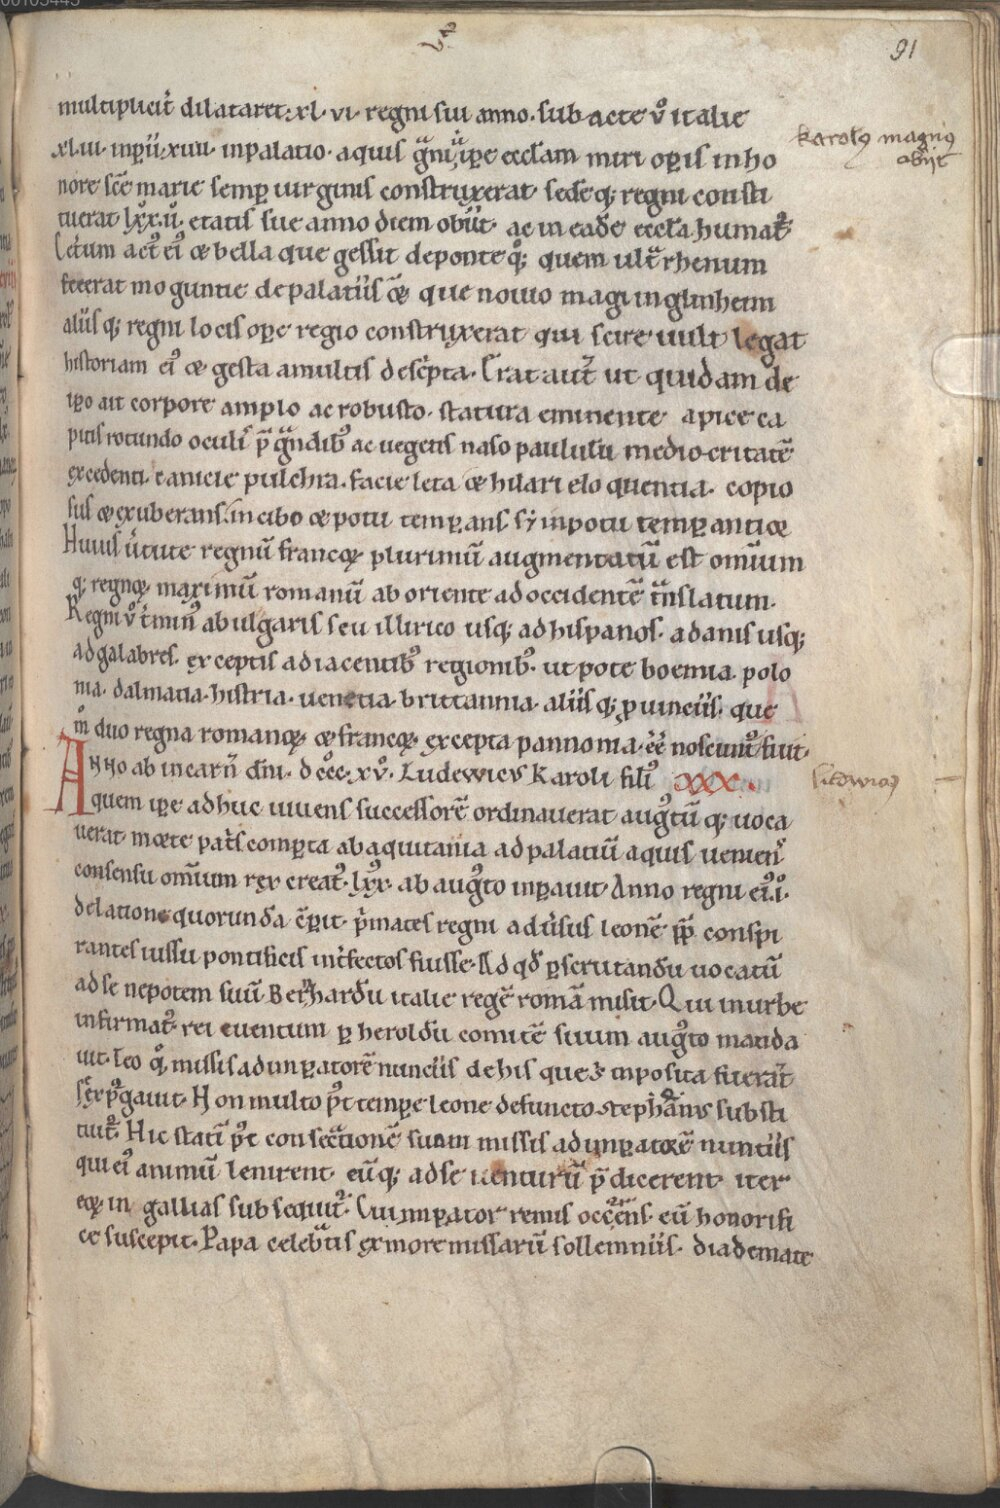 91
multiplicit̄ dilataret: xl. vi. regni sui anno. sub acte v̊ italie
xl. iii. inꝑii: xiiii. in palatio. aquis ḡni, ipse eccl̄am miri oꝑis in ho
nore sc̄e marie semꝑ uirginis construxerat. sedēq; regni consti
tuerat lxx. ii. etatis sue anno diem obiit. ac in eadē eccl̄a humat̄
Cetum act̄ ei᷒ & bella que gessit de ponte q; quem ult̄ rhenum
fecerat moguntie de palatiis & que nouiomagi inglinheim
aliis q; regni locis oꝑe regio construxerat qui scire uult legat
historiam ei᷒ & gesta a multis desc̄pta. Erat aut̄ ut quidam de
ipso ait corpore amplo ac robusto. statura eminente apice ca
pitis rotundo oculis p̄ g̃ndib᷒ ac uegetis naso paululū mediocritatē
excedenti. canicie pulchra. facie leta & hilari eloquentia. copio
sus & exuberans. in cibo & potu temꝑans sꝫ in potu temꝑantior
Huius ũtute regnū francoꝝ plurimū augmentatū est omniūm
q; regnoꝝ maximū romanū ab oriente ad occidentē t̃nslatum.
Regni v̊ t̄min᷒ a bulgaris seu illirico usq; ad hispanos. a danis usq;
ad galabres. exceptis adiacentib᷒ regionib᷒. ut pote boemia. polo
nia. dalmatia. histria. uenetia. brittannia. aliisq; ꝓuinciis. que
m̊ duo regna romanoꝝ & francoꝝ. excepta pannonia. eē noscunt᷒ fiut.
Anno ab incarn̄ dn̄i. dccc. xv. Ludewicus Karoli fili᷒ xxx.
quem ipse adhuc uiuens successorē ordinauerat aug᷒tū q; uoca
uerat. morte pat̄s comꝑta ab aquitania ad palatiū aquis ueniens
consensu omniūm rex creat᷒. lxx. ab aug᷒to inꝑauit. Anno regni ei᷒. i.
delatione quorundā c̄ꝑit. p̄mates regni aduersus leonē pp̄ conspi
rantes iussu pontificis int̄fectos fuisse. Ad qd̄ ꝑscrutandū uocatū
ad se nepotem suū Bernhardū italie regē romā misit. Qui in urbe
infirmat᷒. rei euentum ꝑ heroldū comitē suum aug᷒to manda
uit. Leo q; missis ad imꝑatorē nunciis de his que s̄ inposita fuerant
se expurgauit. Non multo p᷒t temꝑe leone defuncto stephanus substi
tuit᷒. Hic stati p᷒t consecrationē suam missis ad imꝑatorē nuntiis
qui ei᷒ animū lenirent eūq; ad se uenturū p̄dicerent iter
eoꝝ in gallias subsequit᷒. Cui imꝑator remis occurrens eū honorifi
ce suscepit. Papa celebratis ex more missarū sollemniis. diademate
karol᷒ magn᷒
obijt